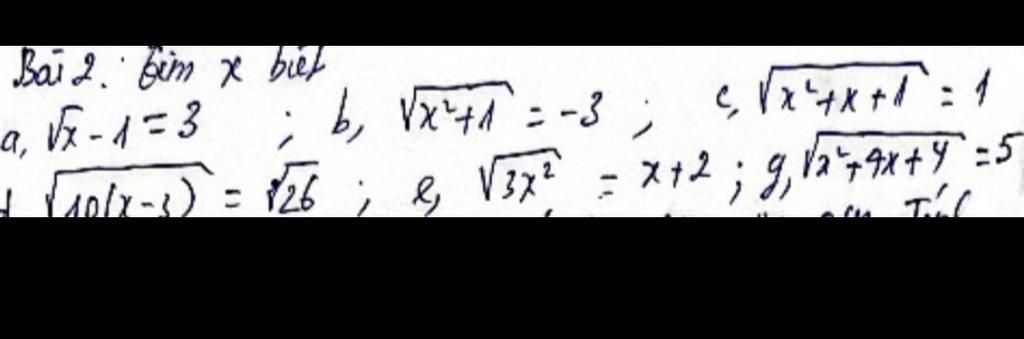 Bài 2. Tìm x biết
a, √x - 1 = 3 ; b, √(x²+1) = -3 ; c, √(x²+x+1) = 1
d √(10(x-3)) = √26 ; e, √(3x²) = x+2 ; g, √(x²+4x+4) = 5